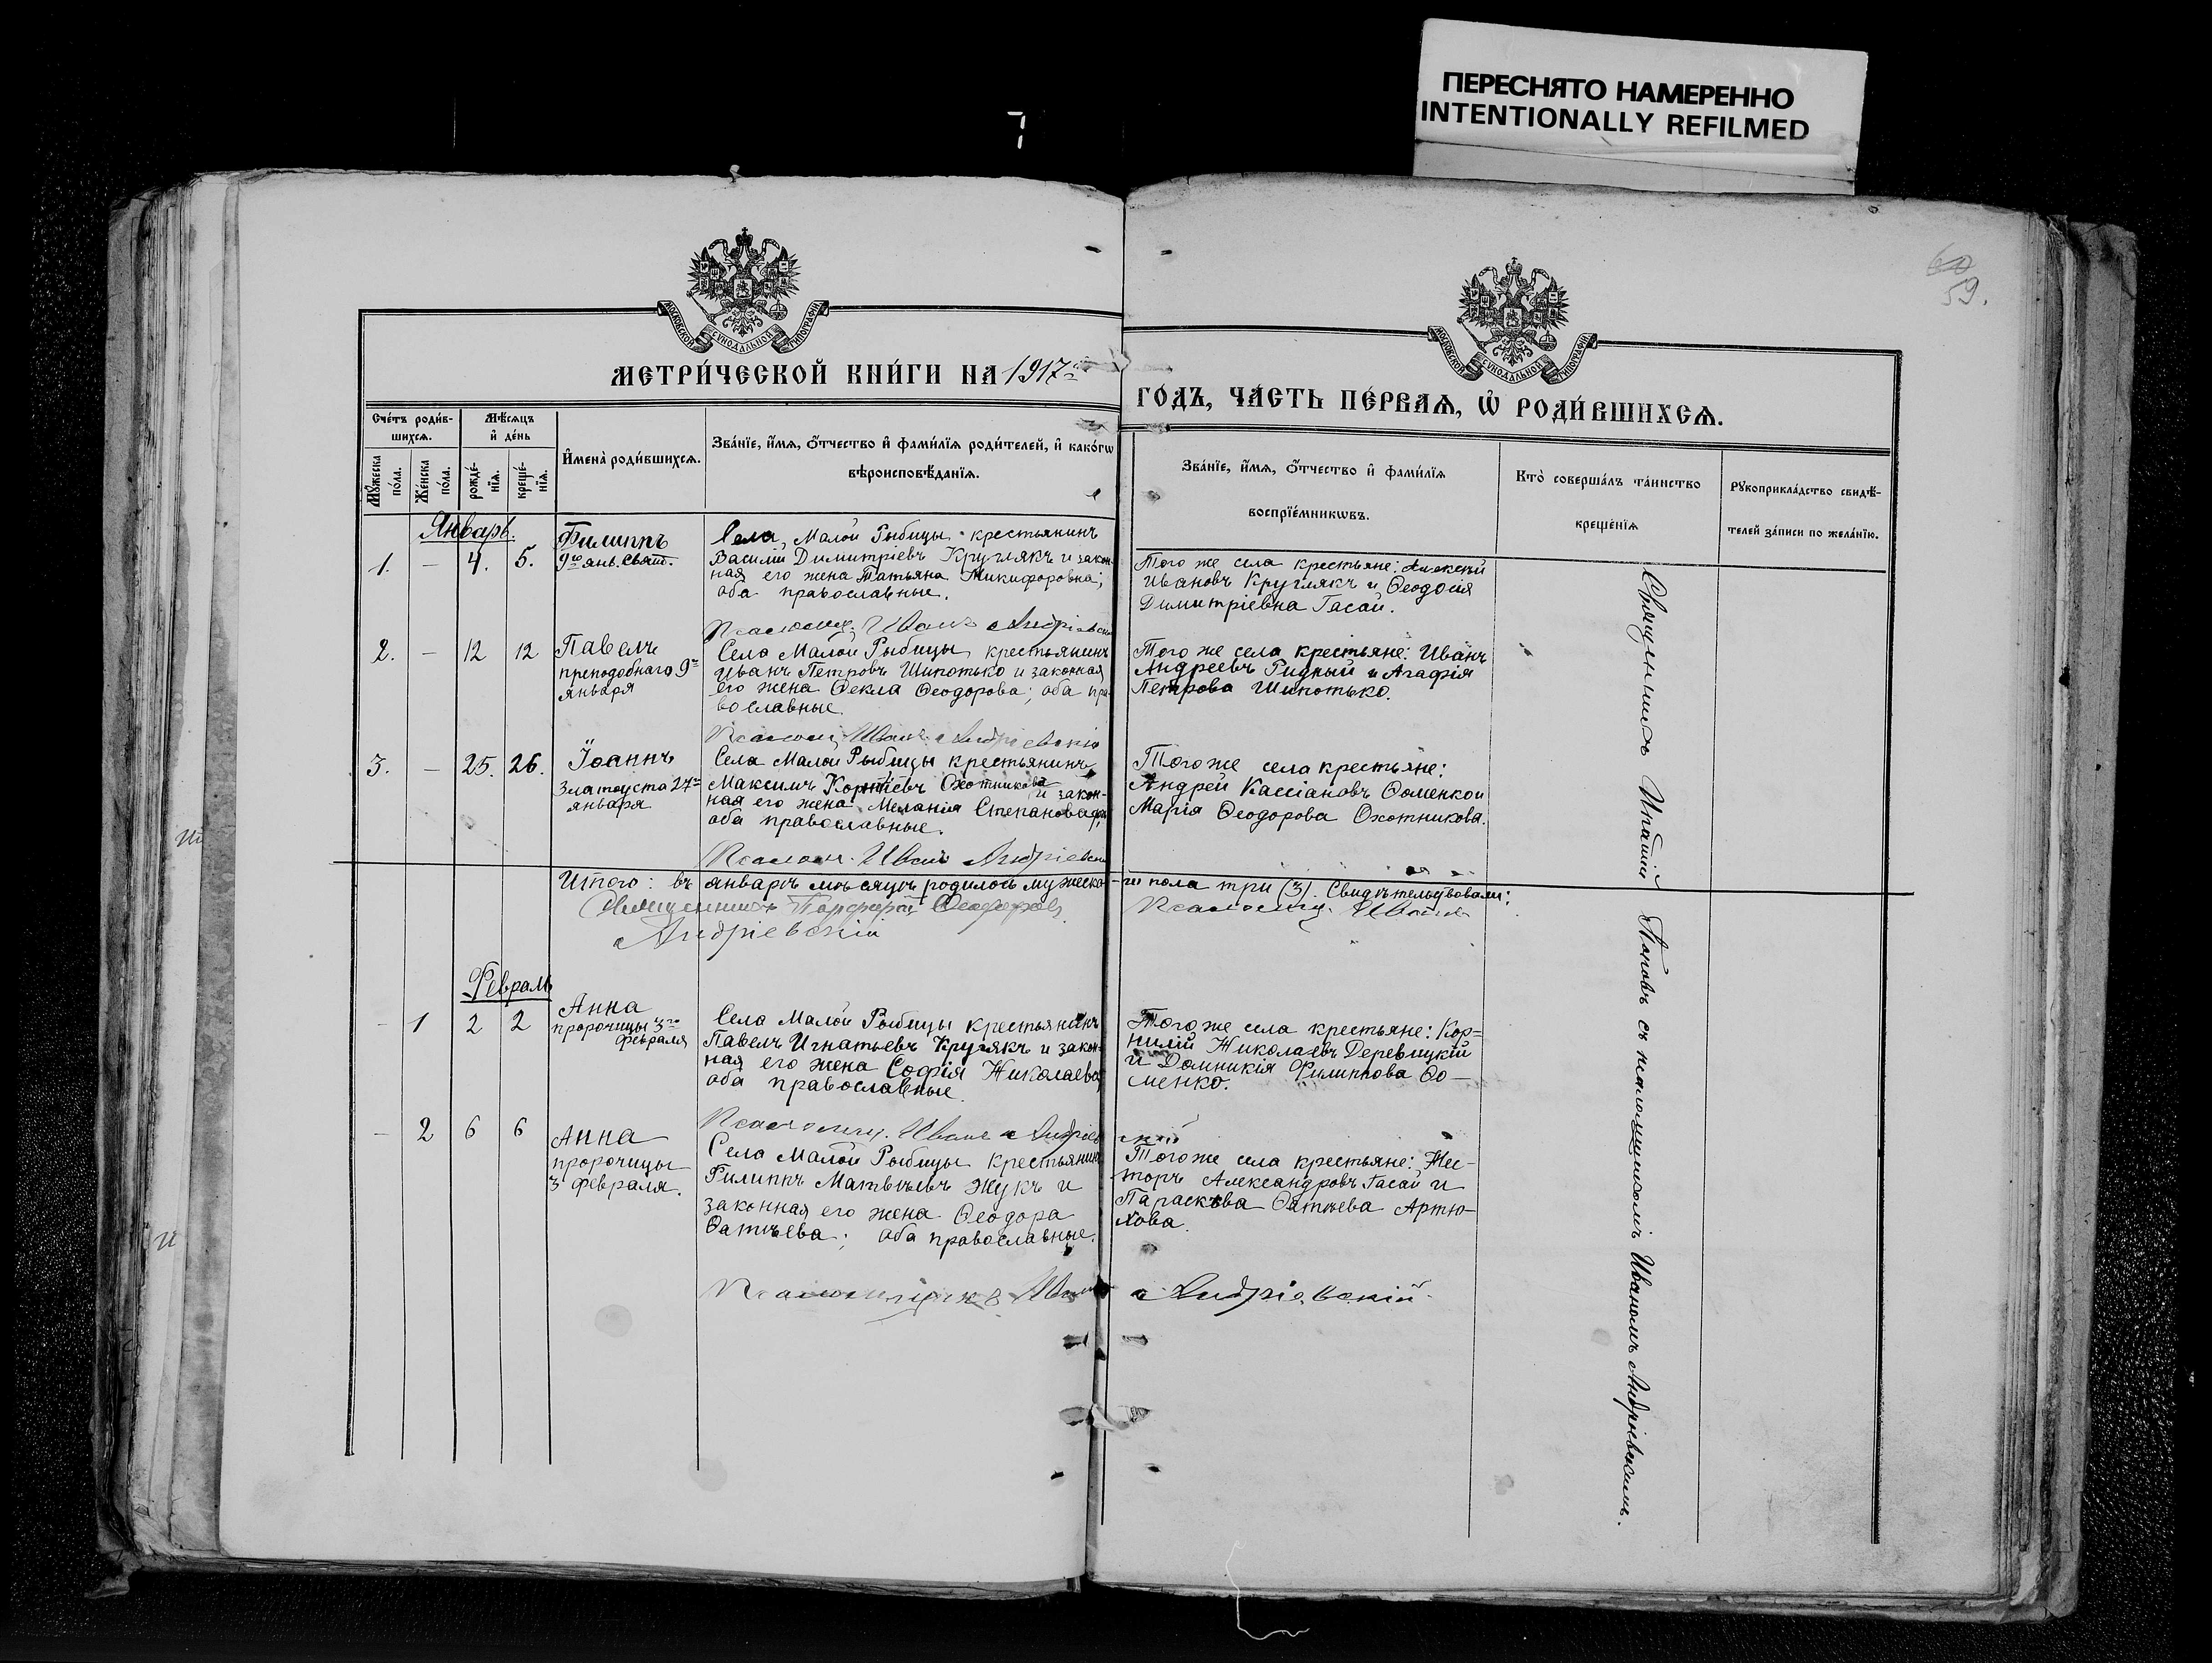 ПЕРЕСНЯТО НАМЕРЕННО
INTENTIONALLY REFILMED
7
60
59.
МОСКОВСКОЙ СѴНОДАЛЬНОЙ ТИПОГРАФІИ
МОСКОВСКОЙ СѴНОДАЛЬНОЙ ТИПОГРАФІИ
МЕТРИ́ЧЕСКОЙ КНИ́ГИ НА 1917й
ГО́ДЪ, ЧА́СТЬ ПЕ́РВАѦ, Ѡ҆ РОДИ́ВШИХСѦ.
Сче́тъ роди́в-
шихсѧ.
Мꙋ́жеска по́ла.
Же́нска по́ла.
Мѣ́сѧцъ
и҆ де́нь
рожде́-нїѧ.
креще́-нїѧ.
И҆мена̀ роди́вшихсѧ.
Зва́нїе, и҆́мѧ, ѻ҆́тчество и҆ фами́лїѧ роди́телей, и҆ како́гѡ
вѣроисповѣ́данїѧ.
Зва́нїе, и҆́мѧ, ѻ҆́тчество и҆ фами́лїѧ
воспрїе́мникѡвъ.
Кто̀ соверша́лъ та́инство
креще́нїѧ
Рꙋкоприкла́дство свидѣ́-
телей за́писи по жела́нїю.
Январь.
1. — 4. 5.
Филиппъ
9го янв. Свят.
Села Малой Рыбицы крестьянинъ
Василій Димитріевъ Круглякъ и закон-
ная его жена Татьяна Никифоровна;
оба православные.
Того же села крестьяне: Алексѣй
Ивановъ Круглякъ и Ѳеодосія
Димитріевна Гасай.
Псаломщ. Иванъ Андріевскі
2. — 12 12
Павелъ
преподобнаго 9го
января
Села Малой Рыбицы крестьянинъ
Иванъ Петровъ Шипотько и законная
его жена Ѳекла Ѳеодорова; оба пра-
вославные.
Того же села крестьяне: Иванъ
Андреевъ Ридный и Агафія
Петрова Шипотько.
Псаломщ. Иванъ Андріевскій
3. — 25. 26.
Іоаннъ
Златоуста 27го
января
Села Малой Рыбицы крестьянинъ
Максимъ Охотниковъ и закон-
ная его жена Меланія Степанова;
оба православные.
Того же села крестьяне:
Андрей Кассіановъ Ѳоменко и
Марія Ѳеодорова Охотникова.
Псаломщ. Иванъ Андріевскі
Итого: въ январѣ мѣсяцѣ родилось мужеско-го пола три (3). Свидѣтельствовали:
Священникъ Порфирій Ѳеодоровъ
Андріевскій
Псаломщ. Иванъ
Февраль
— 1 2 2
Анна
пророчицы 3го
февраля
Села Малой Рыбицы крестьянинъ
Павелъ Игнатьевъ Круглякъ и закон-
ная его жена Софія Николаева;
оба православные.
Того же села крестьяне: Кор-
нилій Николаевъ Деревицкій
и Домникія Филиппова Ѳо-
менко.
Псаломщ. Иванъ Андріев скій
— 2 6 6
Анна
пророчицы
3 февраля.
Села Малой Рыбицы крестьянинъ
Филиппъ Матвѣевъ Жукъ и
законная его жена Ѳеодора
Ѳатѣева; оба православные.
Того же села крестьяне: Нес-
торъ Александровъ Гасай и
Параскева Ѳатѣева Артю-
хова.
Псаломщикъ Иванъ Андріевскій
Священникъ Поповъ съ псаломщикомъ Иваномъ Андріевскимъ.